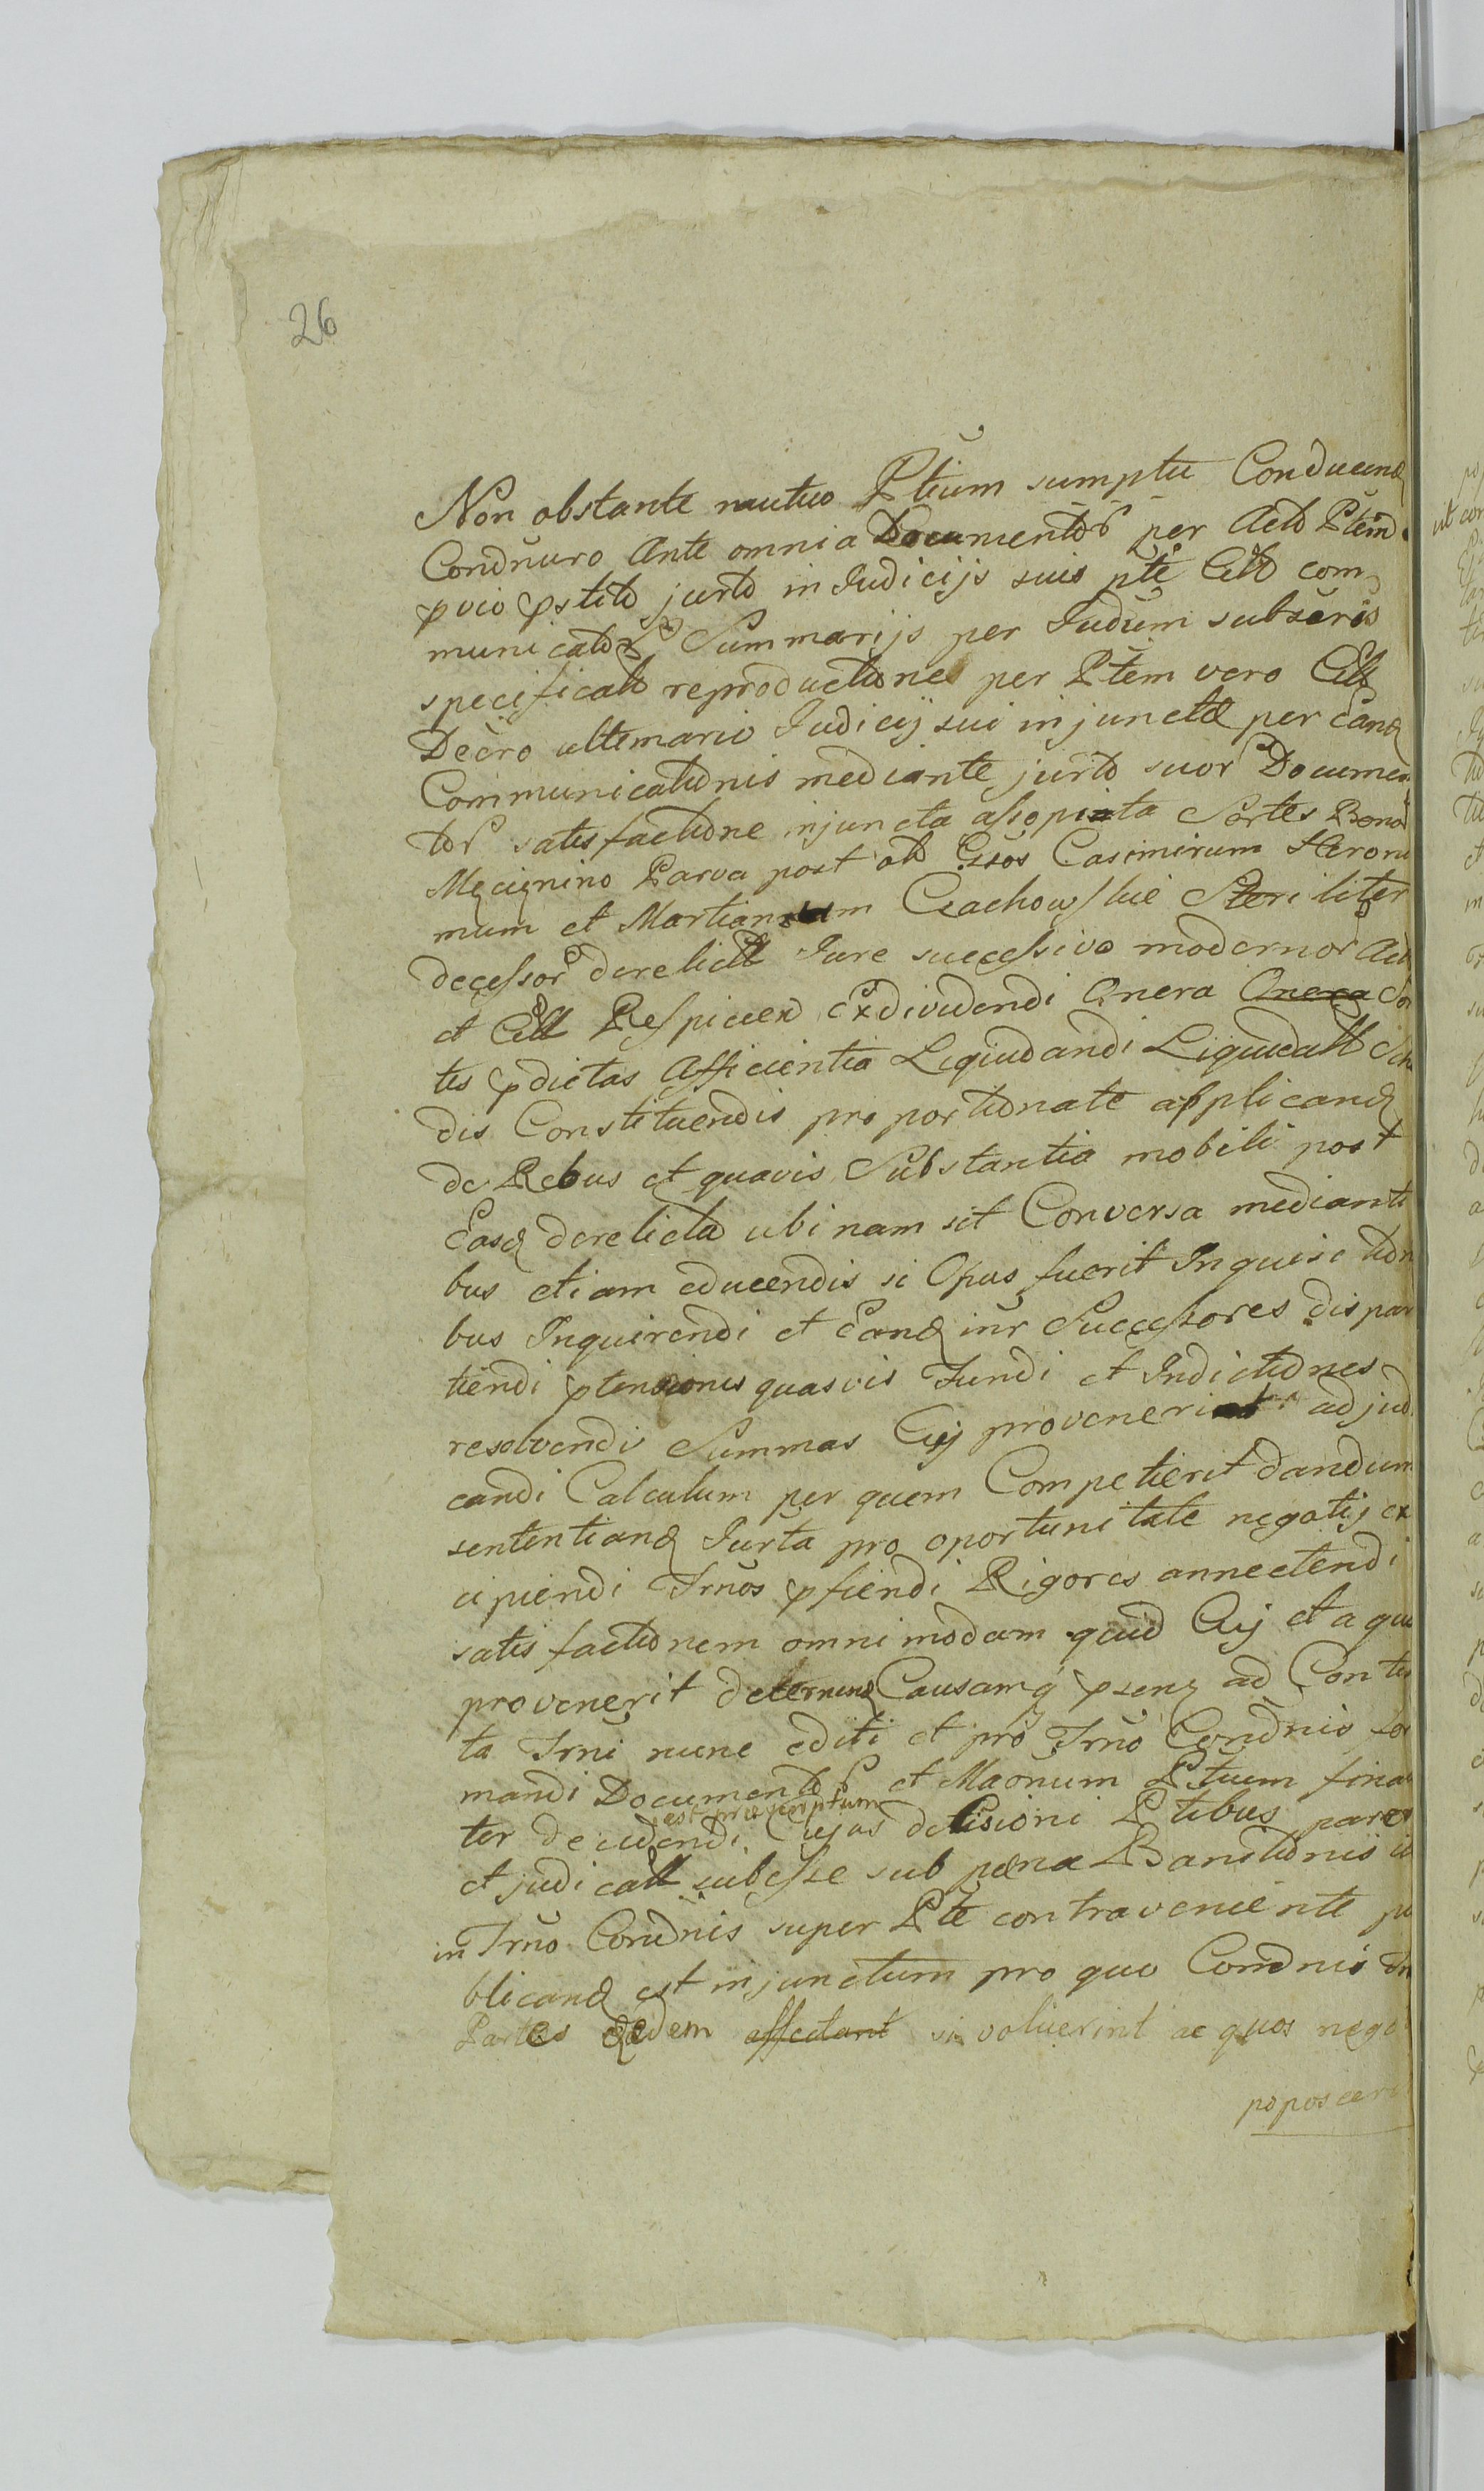 26
Non obstante mutuo Ptium sumptu Conducend
Condnuro Ante omnia Documentor per Acto Ptem
pvio pstito jurto in Judicijs suis pte Citto com
municator Summarijs per Judum subseris
specificatt reproductione per Ptem vero Citt
Decro ultimario Judicij sui injuncta per Eand
Communicationis mediante jurto suor Documen
tor satisfactione injuncta assopiata Sortes Bonor
Męcignino Parva post olo Gssos Casimirum Hieroni
mum et Martianum Czachowskie Steriliter
decessor derelictt Jure successivo modernor Act
et Citt Respicien Exdividendi Onera Onera Sor
tes pdictas Afficientia Liquidandi Liquidatt
dis Constituendis proportionate applicand
de Rebus et quavis Substantia mobili post
Eosd derelicta ubi nam sit Conversa medianti
bus etiam educendis si Opus fuerit Inquisition
bus Inquirendi et Eand intr Successores dispar
tiendi ptensiones quasvis Fundi et Indictiones
resolvendi Summas Cuj provenerint adjud
candi Calculum per quem Competierit dandum
sententiand Jurta pro oportunitate negotij ex
cipiendi Trnos pfiendi Rigores annectendi
satisfactionem omnimodam quid Cuj et a quo
provenerit determind Causamq psenz ad Conten
ta Trni nunc editi et pro Trno Condnis for
mandi Documentor et Maonum Ptium final
ter decidendi est praescriptum Cujus decisioni Ptibus parer
et judicatt subesse sub paena Banitionis
in Trno Condnis super Pte contraveniente pu
blicand est injunctum pro quo Condnis
Partes eaedem affectant si voluerint ac quos nego
poposceri